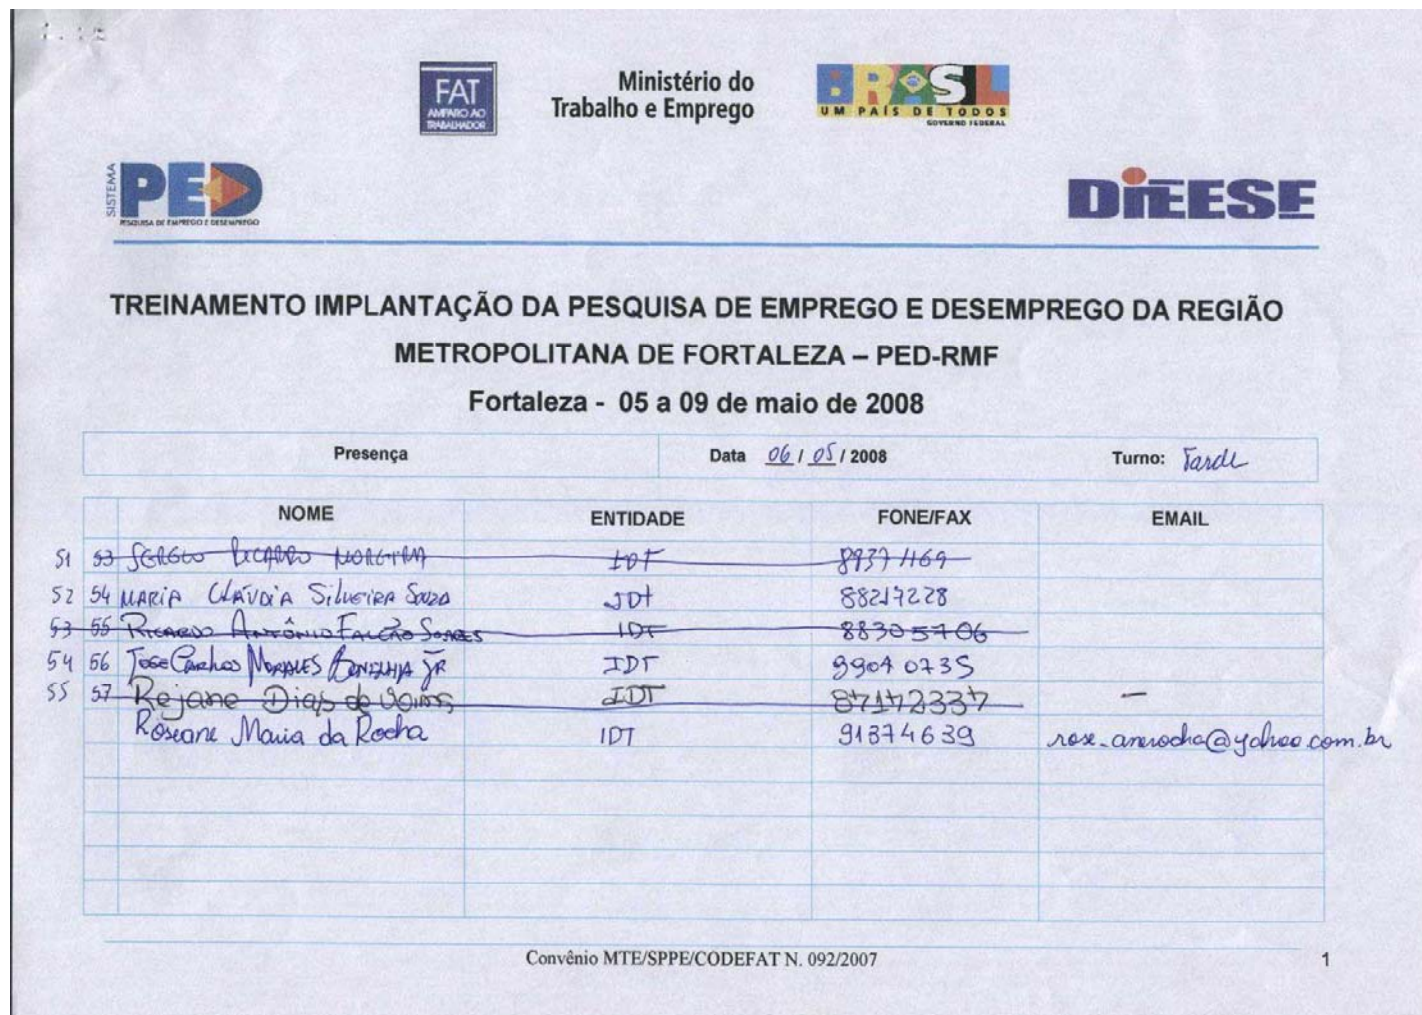 FAT
AMPARO AO
TRABALHADOR
Ministério do
Trabalho e Emprego
BRASIL
UM PAÍS DE TODOS
GOVERNO FEDERAL
SISTEMA
PED
PESQUISA DE EMPREGO E DESEMPREGO
DIEESE
TREINAMENTO IMPLANTAÇÃO DA PESQUISA DE EMPREGO E DESEMPREGO DA REGIÃO
METROPOLITANA DE FORTALEZA – PED-RMF
Fortaleza - 05 a 09 de maio de 2008
Presença Data 06 / 05 / 2008 Turno: Tarde
NOME ENTIDADE FONE/FAX EMAIL
51 53 SERGIO RICARDO MOREIRA IDT 89371169
52 54 MARIA CLÁUDIA SILVEIRA SOUZA IDT 88217228
53 55 RICARDO ANTÔNIO FALCÃO SOARES IDT 88305706
54 56 JOSE CARLOS MORALES JR IDT 9904 0735
55 57 Rejane Dias de IDT 87172337 —
Roseane Maria da Rocha IDT 91374639 rose_anerocha@yahoo.com.br
Convênio MTE/SPPE/CODEFAT N. 092/2007 1